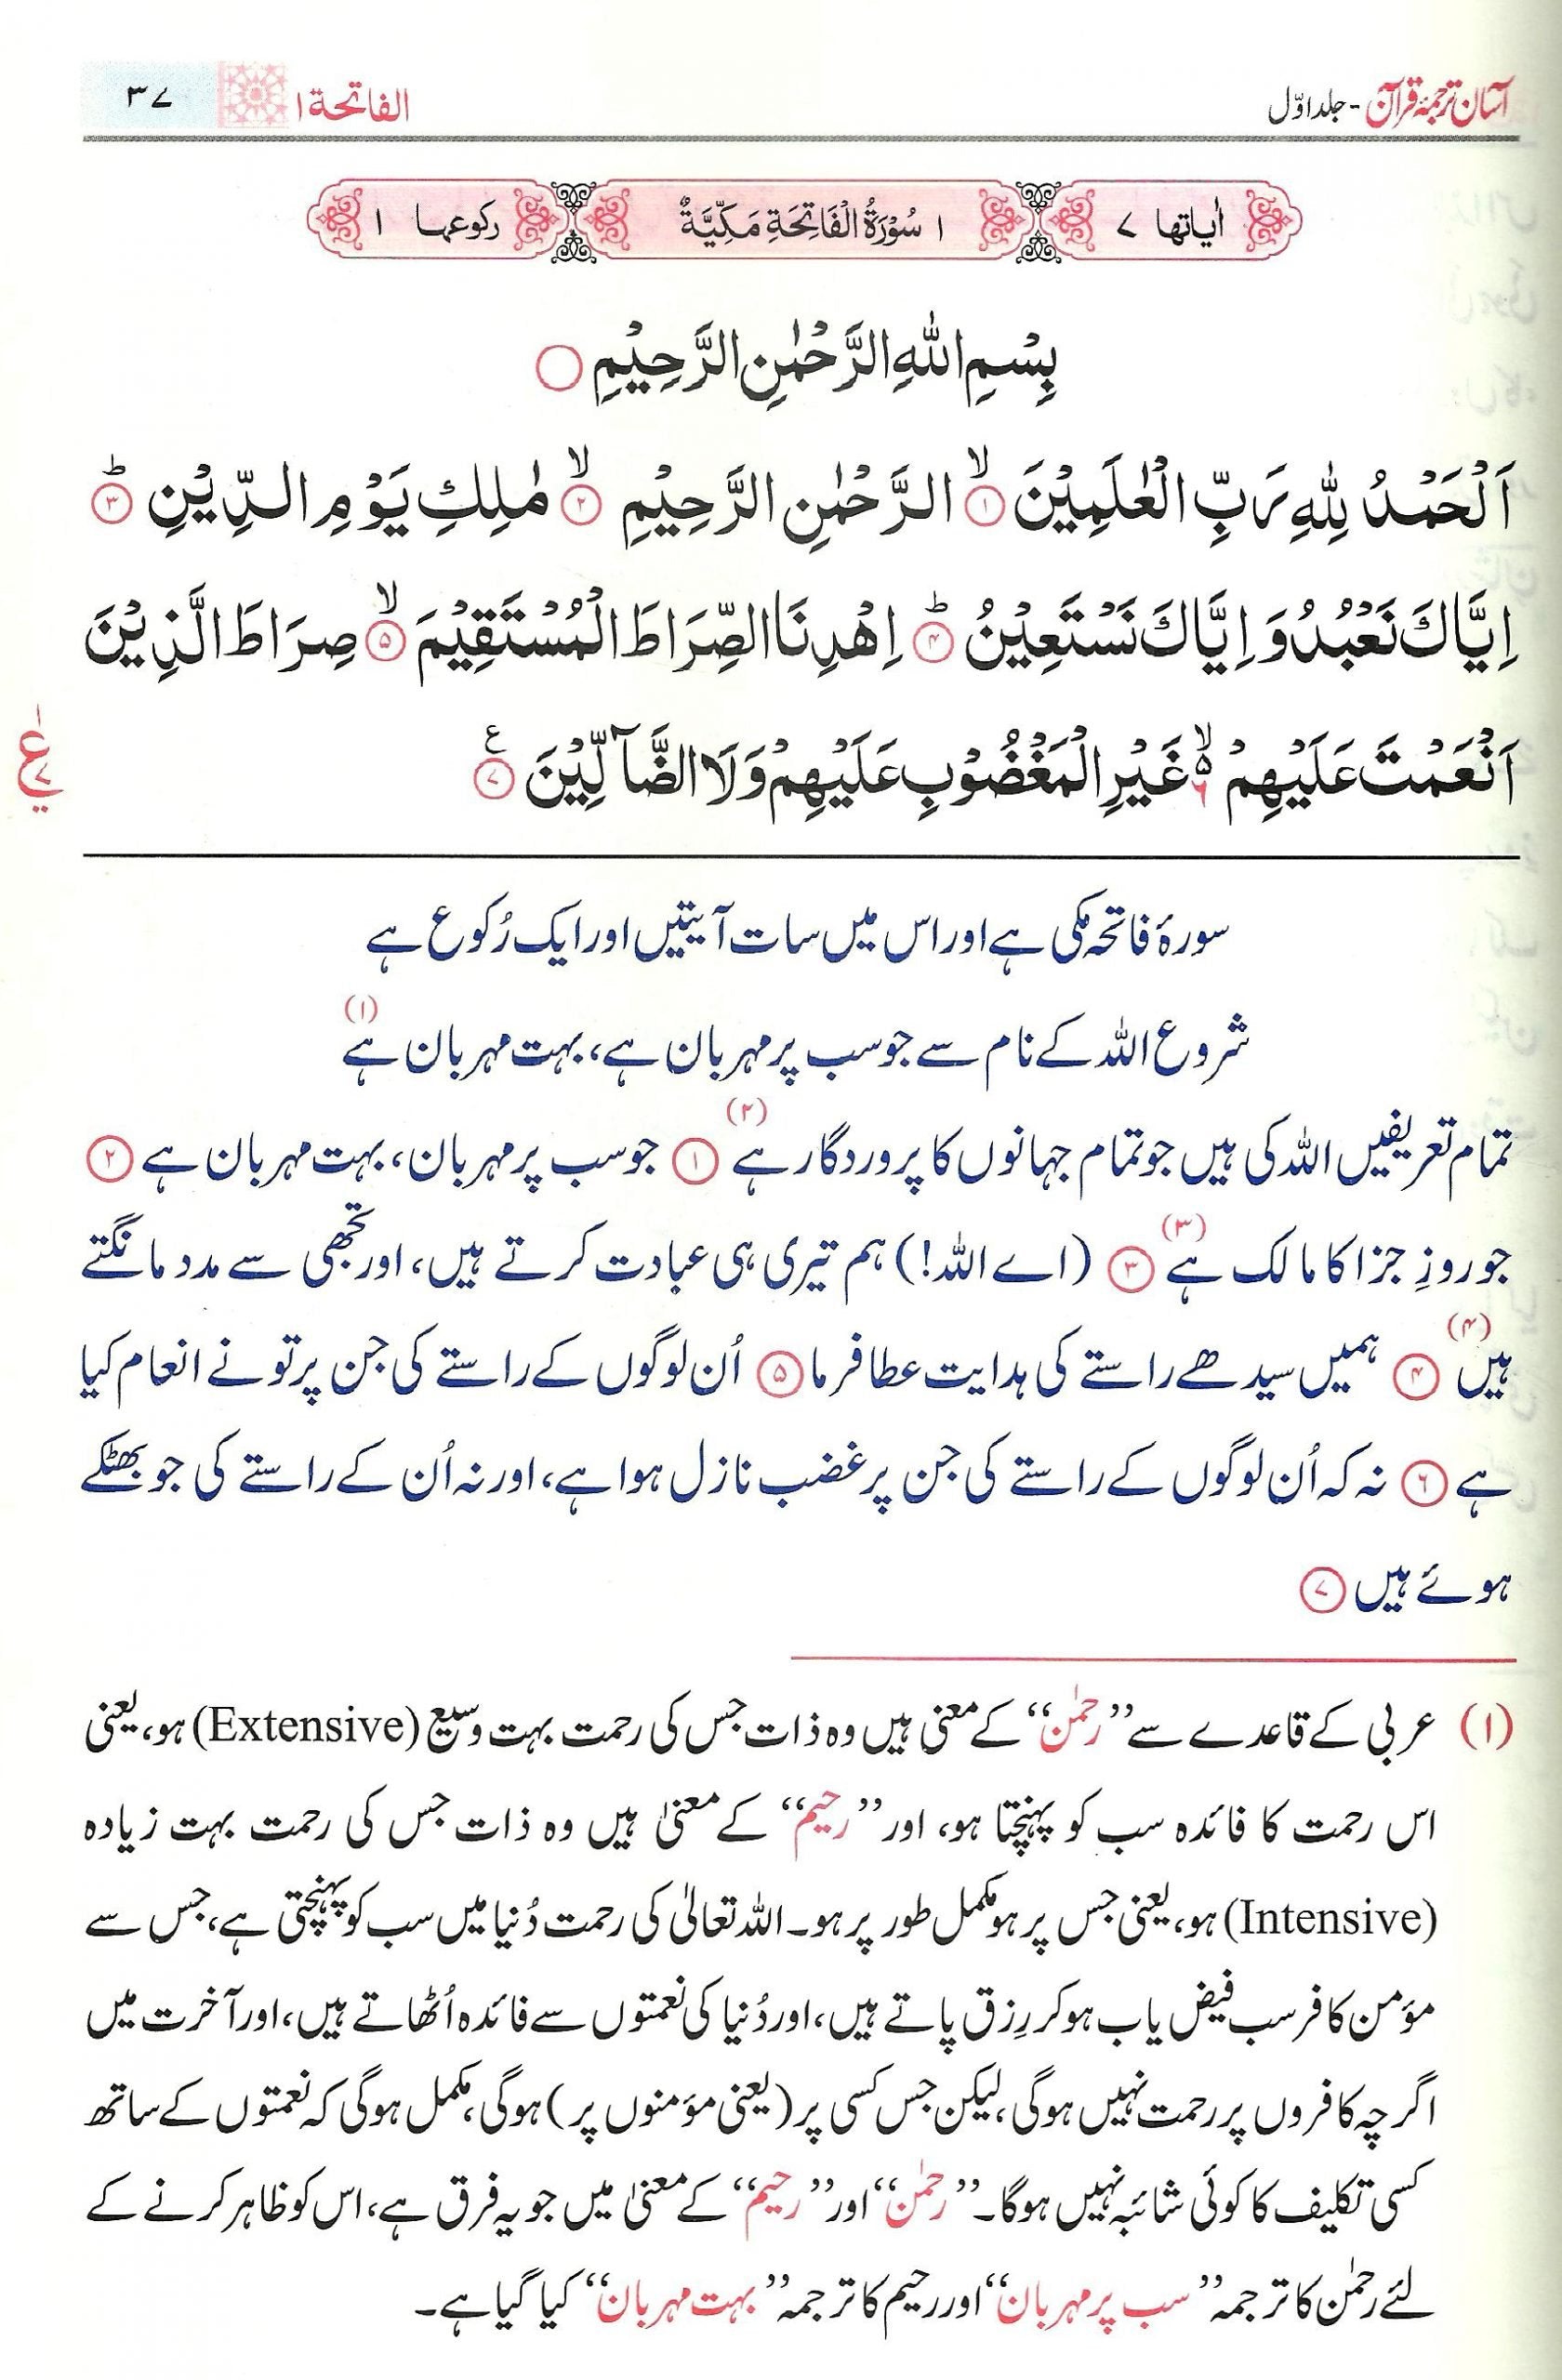 آسان ترجمۂ قرآن - جلد اوّل
الفاتحة ١
٣٧
اٰیاتها ٧
١ سُوْرَةُ الْفَاتِحَةِ مَكِّیَّةٌ
رکوعها ١
بِسْمِ اللّٰهِ الرَّحْمٰنِ الرَّحِیْمِ
اَلْحَمْدُ لِلّٰهِ رَبِّ الْعٰلَمِیْنَ ۙ﴿۱﴾ الرَّحْمٰنِ الرَّحِیْمِ ۙ﴿۲﴾ مٰلِكِ یَوْمِ الدِّیْنِ ؕ﴿۳﴾
اِیَّاكَ نَعْبُدُ وَ اِیَّاكَ نَسْتَعِیْنُ ؕ﴿۴﴾ اِهْدِنَا الصِّرَاطَ الْمُسْتَقِیْمَ ۙ﴿۵﴾ صِرَاطَ الَّذِیْنَ
اَنْعَمْتَ عَلَیْهِمْ ۙ۬ۦ۶ غَیْرِ الْمَغْضُوْبِ عَلَیْهِمْ وَلَا الضَّآلِّیْنَ ﴿۷﴾ ع
١ ع ٧
سورۂ فاتحہ مکی ہے اور اس میں سات آیتیں اور ایک رُکوع ہے
شروع اللہ کے نام سے جو سب پر مہربان ہے، بہت مہربان ہے (۱)
تمام تعریفیں اللہ کی ہیں جو تمام جہانوں کا پروردگار ہے (۲) ﴿۱﴾ جو سب پر مہربان، بہت مہربان ہے ﴿۲﴾
جو روزِ جزا کا مالک ہے (۳) ﴿۳﴾ (اے اللہ!) ہم تیری ہی عبادت کرتے ہیں، اور تجھی سے مدد مانگتے
ہیں (۴) ﴿۴﴾ ہمیں سیدھے راستے کی ہدایت عطا فرما ﴿۵﴾ اُن لوگوں کے راستے کی جن پر تو نے انعام کیا
ہے ﴿۶﴾ نہ کہ اُن لوگوں کے راستے کی جن پر غضب نازل ہوا ہے، اور نہ اُن کے راستے کی جو بھٹکے
ہوئے ہیں ﴿۷﴾
(۱) عربی کے قاعدے سے ’’رحمٰن‘‘ کے معنی ہیں وہ ذات جس کی رحمت بہت وسیع (Extensive) ہو، یعنی
اس رحمت کا فائدہ سب کو پہنچتا ہو، اور ’’رحیم‘‘ کے معنیٰ ہیں وہ ذات جس کی رحمت بہت زیادہ
(Intensive) ہو، یعنی جس پر ہو مکمل طور پر ہو۔ اللہ تعالیٰ کی رحمت دُنیا میں سب کو پہنچتی ہے، جس سے
مؤمن کافر سب فیض یاب ہو کر رِزق پاتے ہیں، اور دُنیا کی نعمتوں سے فائدہ اُٹھاتے ہیں، اور آخرت میں
اگرچہ کافروں پر رحمت نہیں ہوگی، لیکن جس کسی پر (یعنی مؤمنوں پر) ہوگی، مکمل ہوگی کہ نعمتوں کے ساتھ
کسی تکلیف کا کوئی شائبہ نہیں ہوگا۔ ’’رحمٰن‘‘ اور ’’رحیم‘‘ کے معنیٰ میں جو یہ فرق ہے، اس کو ظاہر کرنے کے
لئے رحمٰن کا ترجمہ ’’سب پر مہربان‘‘ اور رحیم کا ترجمہ ’’بہت مہربان‘‘ کیا گیا ہے۔